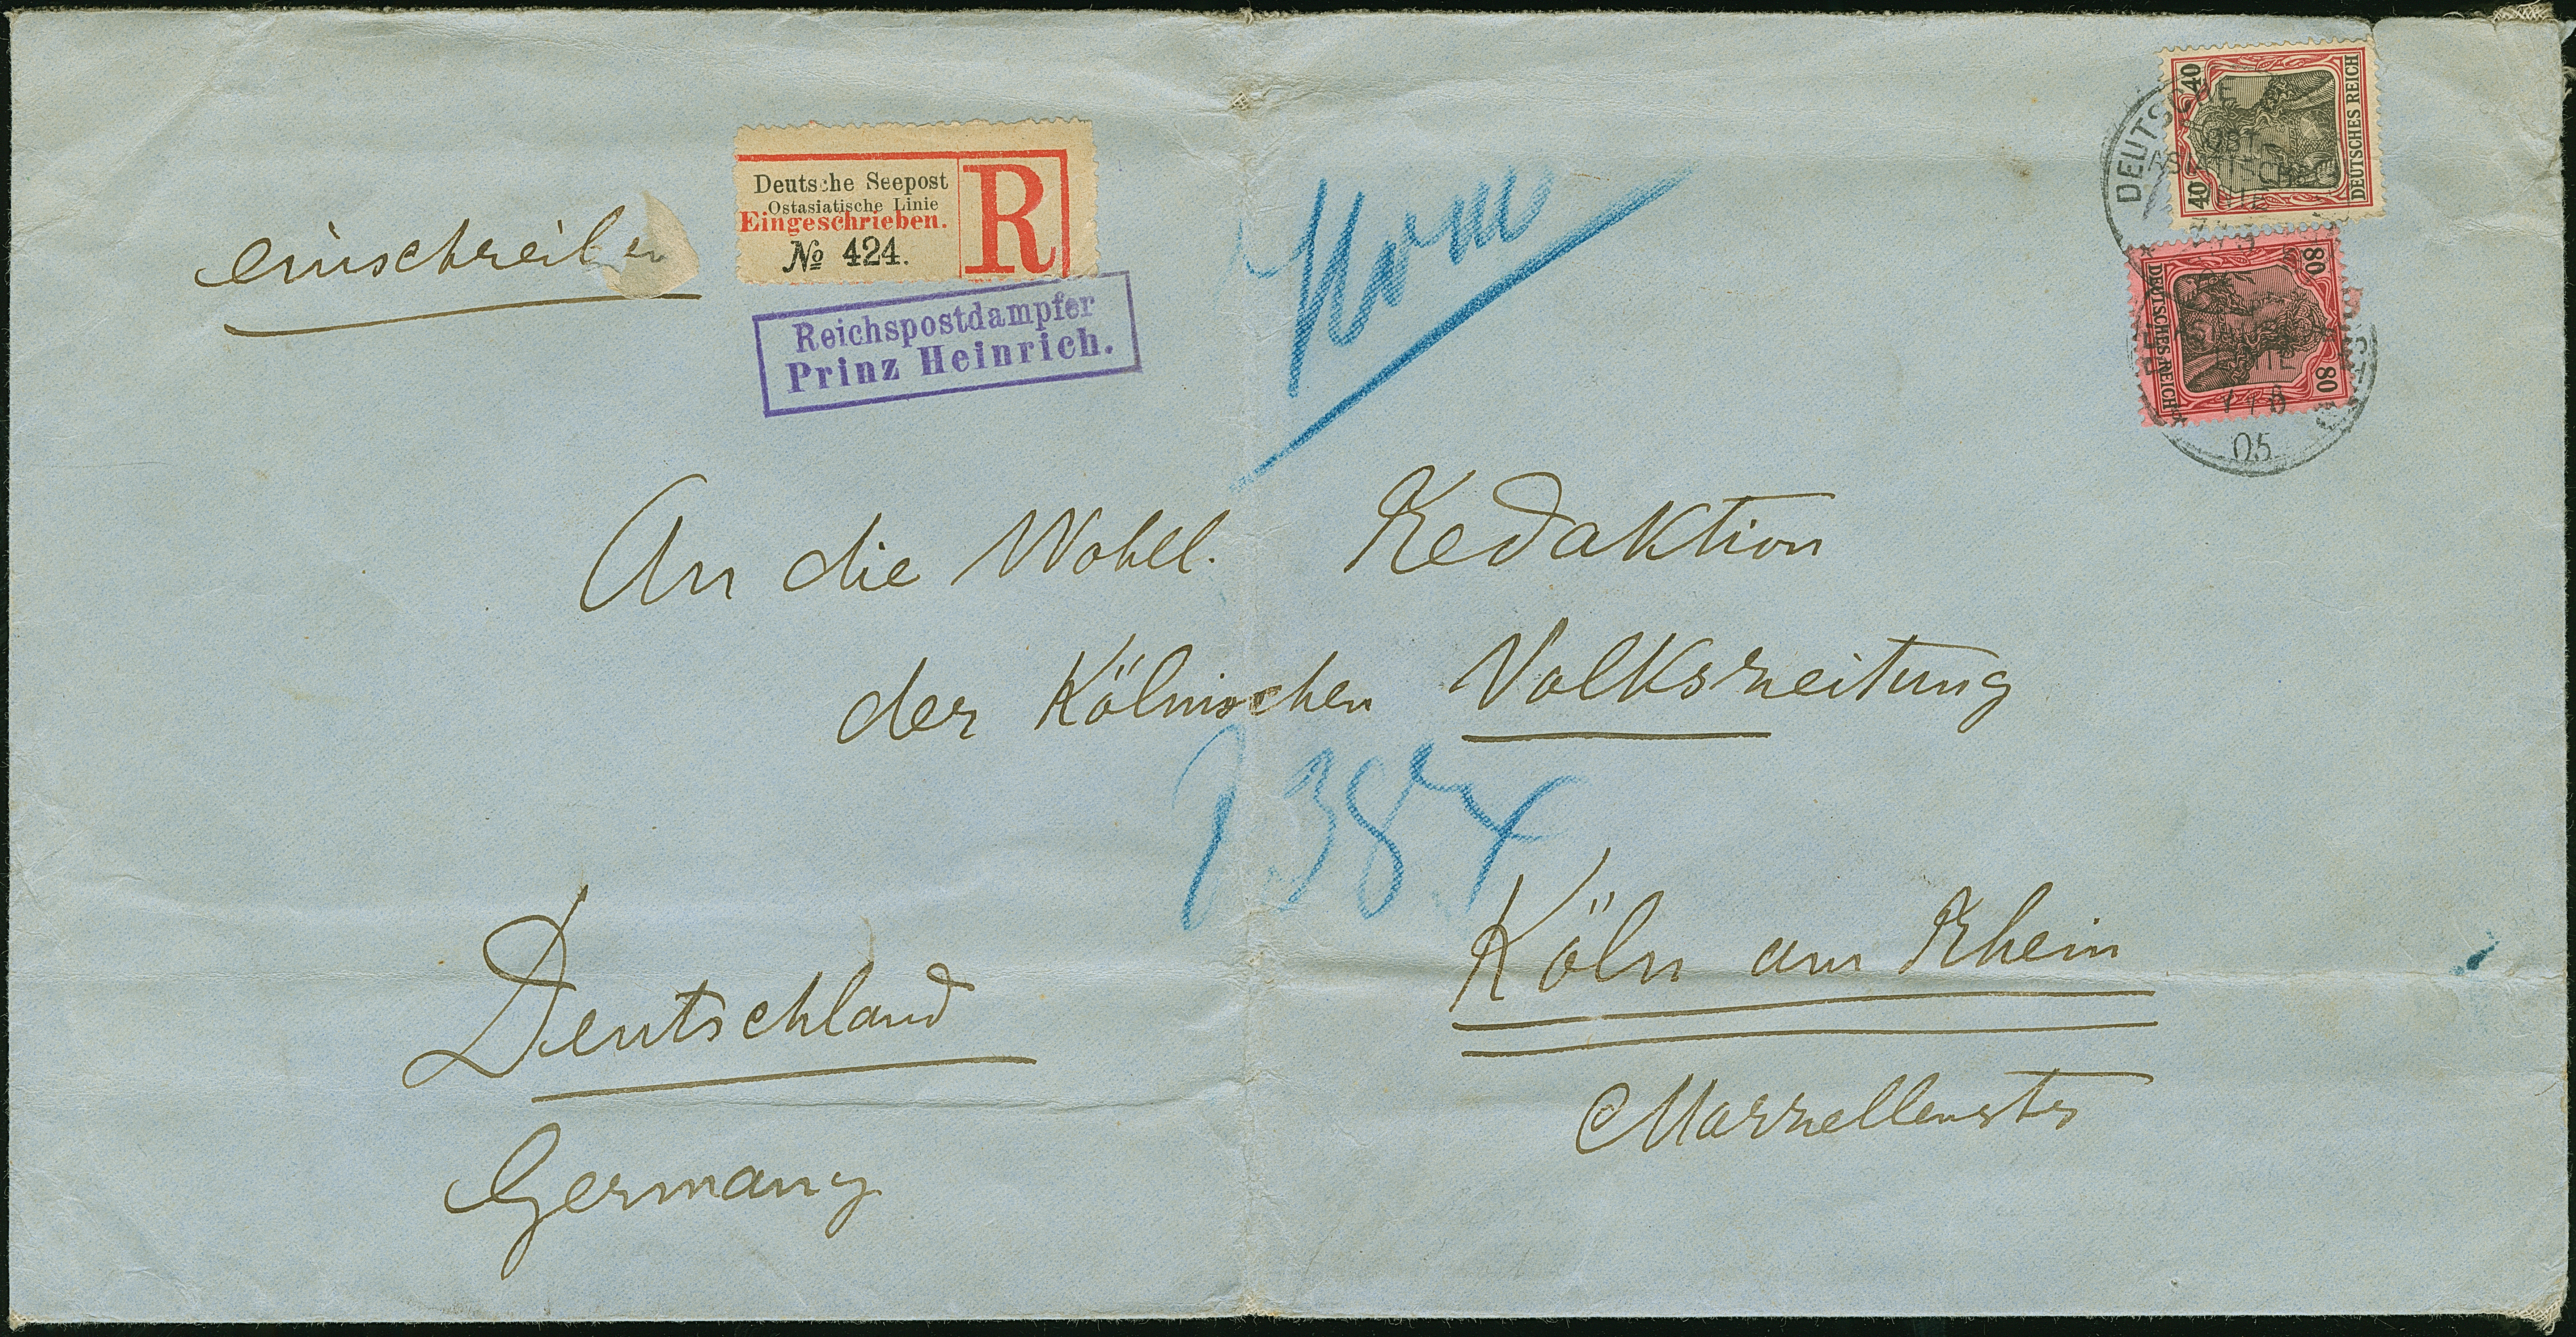 einschreiben
Deutsche Seepost
Ostasiatische Linie
Eingeschrieben.
№ 424.
R
Reichspostdampfer
Prinz Heinrich.
40 40
DEUTSCHES REICH
DEUTSCHE
80 80
DEUTSCHES REICH
05
An die Wohll. Redaktion
der Kölnischen Volkszeitung
38
Köln am Rhein
Marzellenstr
Deutschland
Germany